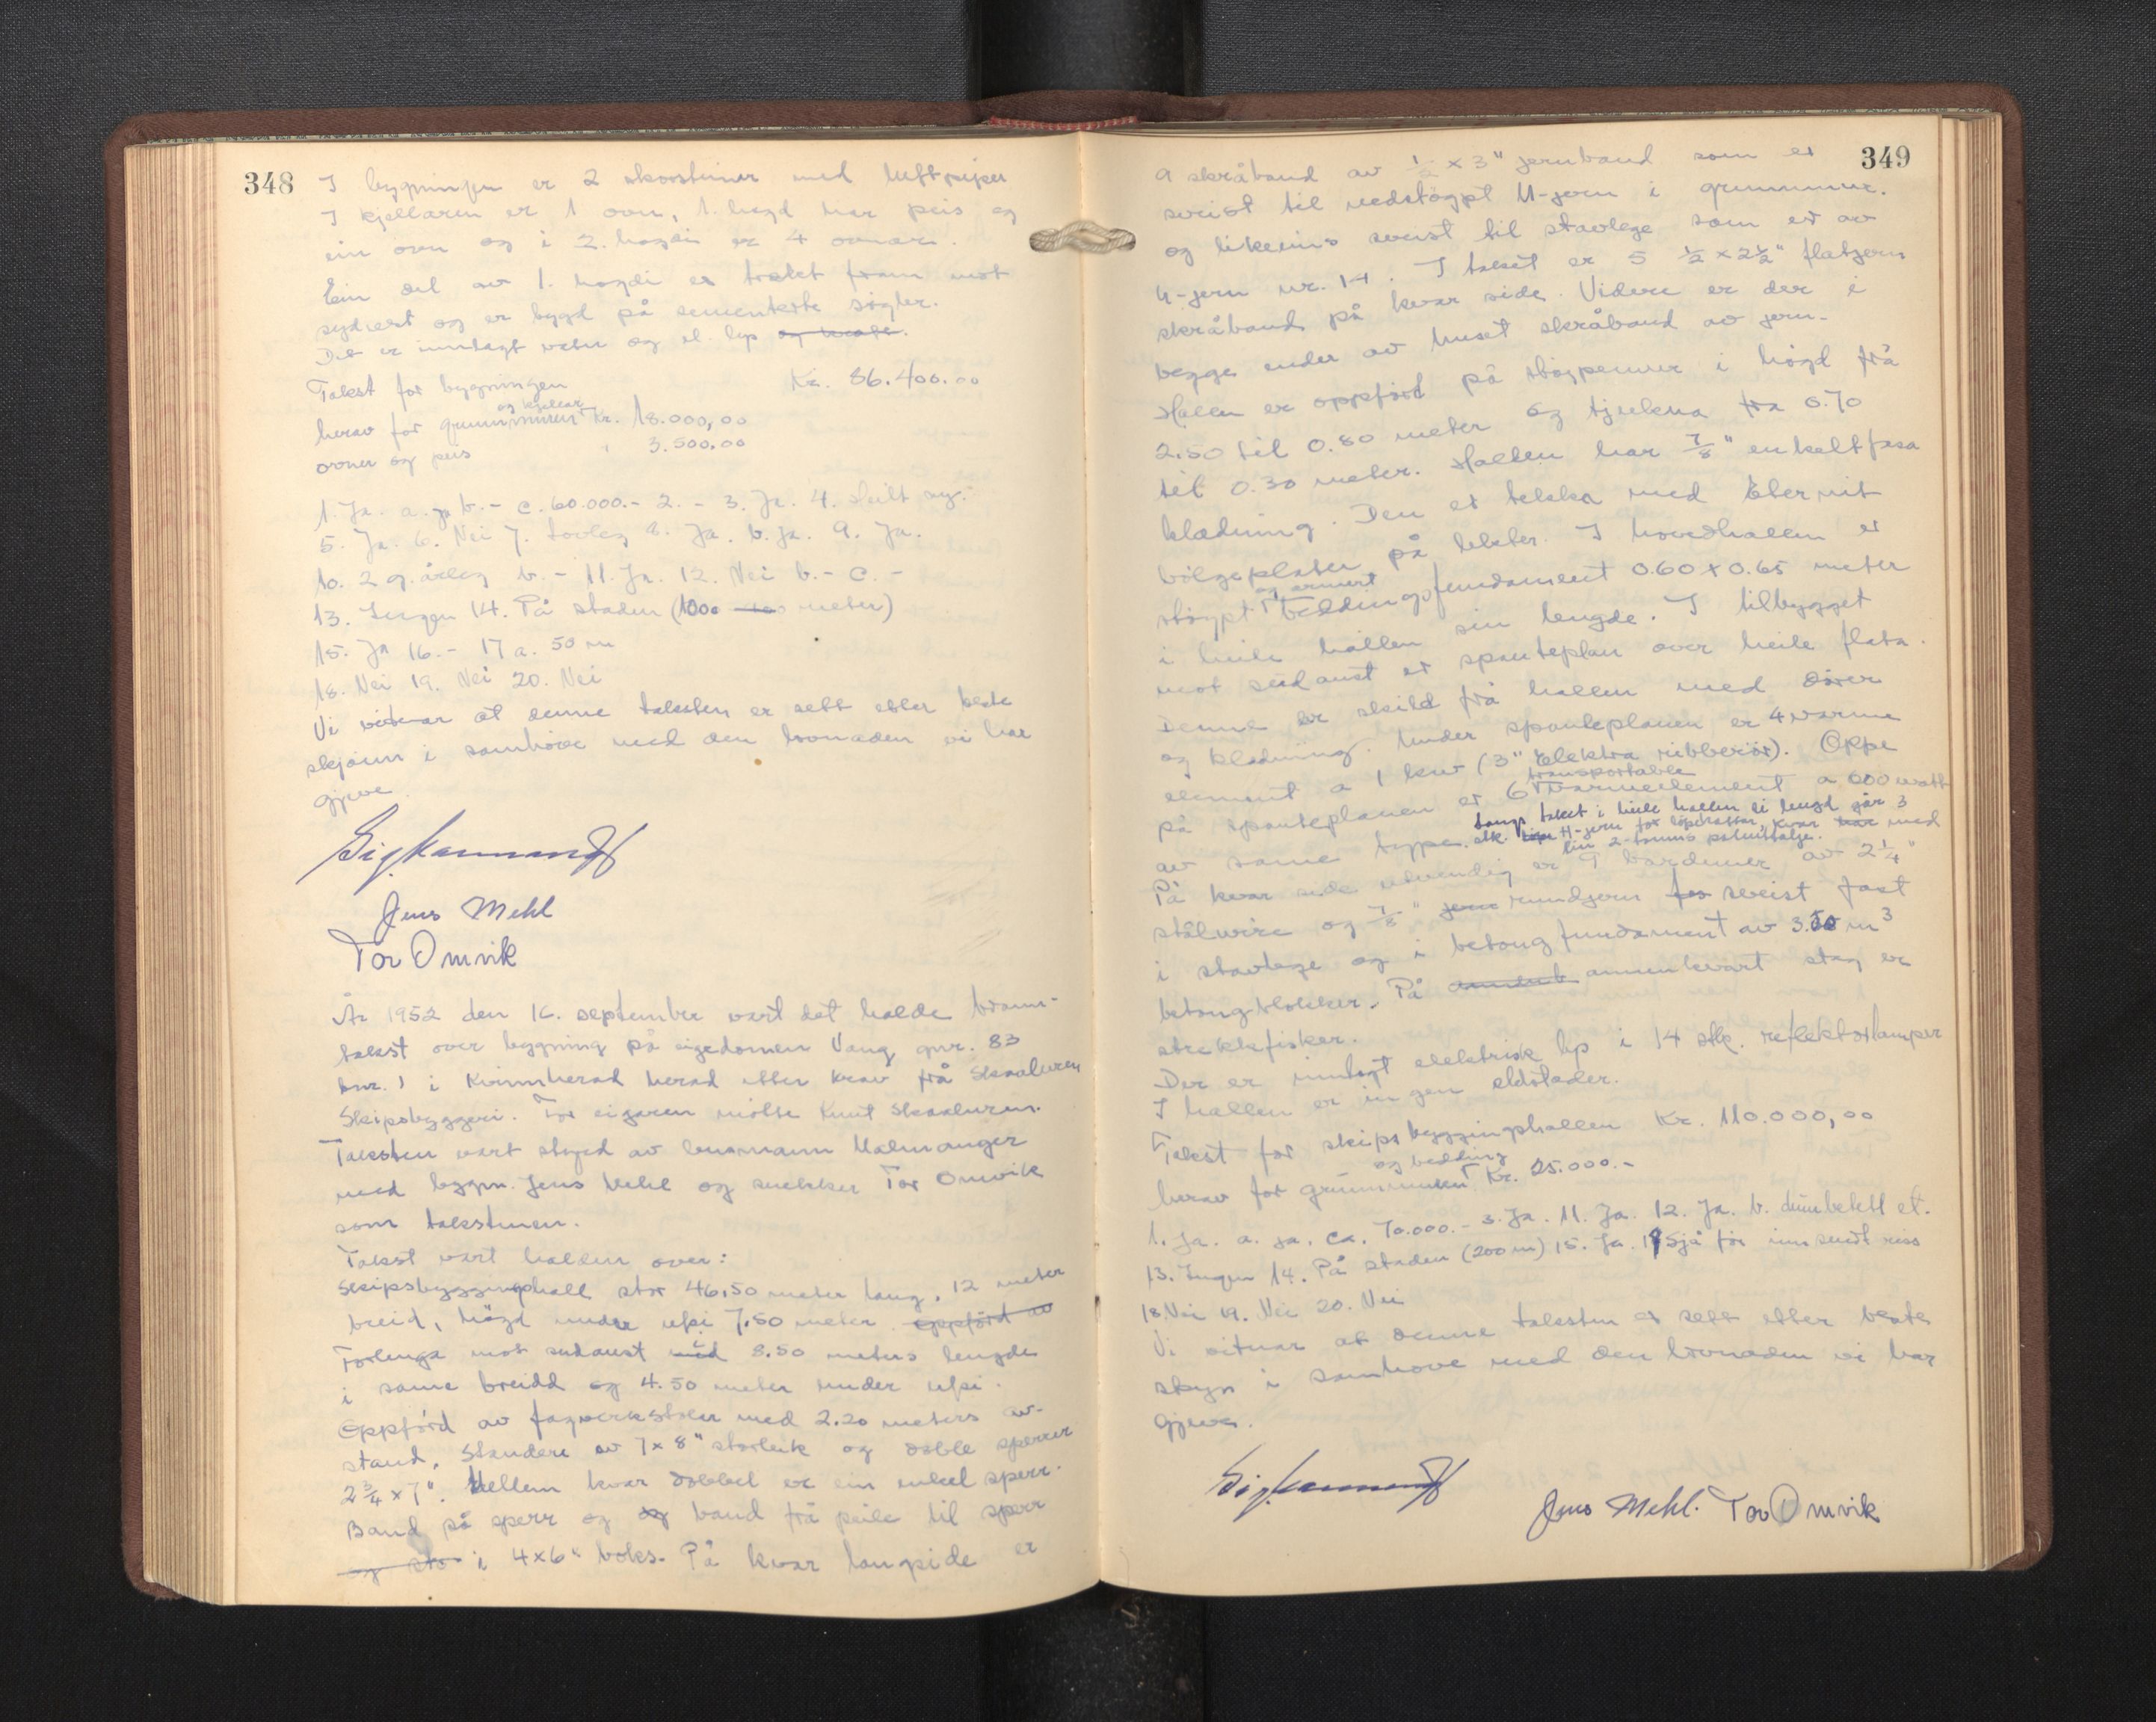 348
I bygningen er 2 skorsteiner med luftpiper
I kjellaren er 1 ovn, 1. høgd har peis og
ein ovn og i 2. høgdi er 4 ovnar.
Ein del av 1. høgdi er trekt fram mot
sydvest og er bygd på sementerte søyler.
Det er innlagt vatn og el. lys og
Takst for bygningen Kr. 86.400.00
og kjellar
herav for grunnmuren Kr. 18.000,00
ovner og peis " 3.500,00
1. Ja. a. ja b. - c. 60.000.- 2. - 3. Ja. 4. Heilt ny.
5. Ja. 6. Nei 7. Lovleg 8. Ja. b. Ja. 9. Ja.
10. 2 g. årleg b. - 11. Ja. 12. Nei b. - c. -
13. Ingen 14. På staden (1000 meter)
15. Ja 16. - 17 a. 50 m
18. Nei 19. Nei 20. Nei
Vi vitnar at denne taksten er sett etter beste
skjønn i samhøve med den kunnaden vi har
gjeve.
Jens Mehl
Tor Omvik
År 1952 den 16. september vart det halde brann-
takst over bygning på eigedomen Vang gnr. 83
bnr. 1 i Kvinnherad herad etter krav frå Skaaluren
Skipsbyggeri. For eigaren møtte Knut Skaaluren.
Taksten vart styrd av lensmann Malmanger
med bygm. Jens Mehl og snekker Tor Omvik
som takstmenn.
Takst vart halden over:
Skipsbygginghall stor 46,50 meter lang, 12 meter
breid, høgd under ufsi 7,50 meter. oppførd av
Forlenga mot sudaust med i 8.50 meters lengde
i same breidd og 4.50 meter under ufsi.
Oppførd av fagverkstolar med 2.20 meters av-
stand. Standere av 7x8" storleik og doble sperrer
2 3/4 x 7". Mellem kvar dobbel er ein enkel sperr.
Band på sperr og og band frå peile til sperr
og sto i 4x6" boks. På kvar langside er
349
9 skråband av 1/2 x 3" jernband som er
sveist til nedstøypt U-jern i grunnmur.
og likeeins sveist til stavlege som er av
U-jern nr. 14. I taket er 5 1/2 x 2 1/2" flatjern
skråband på kvar side. Videre er der i
begge ender av huset skråband av jern.
Hallen er oppførd på støypemur i høgd frå
2.50 til 0.80 meter og tjukna fra 0.70
til 0.30 meter. Hallen har 7/8" enkeltfasa
kledning. Den er tekka med Eternit
bølgeplater på lekter. I hovedhallen er
og armert
støypt beddingsfundament 0.60 x 0.65 meter
i heile hallen sin lengde. I tilbygget
mot sudaust er spanteplan over heile flata.
Denne er skild frå hallen med dører
og kledning. Under spanteplanen er 4 varme
element a 1 kw (3" Elektra ribberør). Oppe
transportable
på spanteplanen er 6 varmeelement a 600 watt
langs taket i heile hallen si lengd går 3
av same type. stk. H-jern for løpekatter, kvar med
ein 2-tonns patenttalje.
På kvar side utvendig er 9 barduner av 2 1/4"
stålwire og 7/8" jern rundjern fes sveist fast
i stavlege og i betongfundament av 3.50 m3
betongblokker. På annenkvart stag er
strekkfisker.
Der er innlagt elektrisk lys i 14 stk. reflektorlamper
I hallen er ingen eldstader.
Takst for skipsbyggingshallen Kr. 110.000,00
og bedding
herav for grunnmuren Kr. 25.000.-
1. Ja. a. ja. ca. 70.000.- 3. Ja. 11. Ja. 12. Ja. b.
13. Ingen 14. På staden (200 m) 15. Ja. 17 Sjå før innsendt riss
18. Nei 19. Nei 20. Nei
Vi vitnar at denne taksten er sett etter beste
skyn i samhøve med den kunnaden vi har
gjeve.
Jens Mehl. Tor Omvik